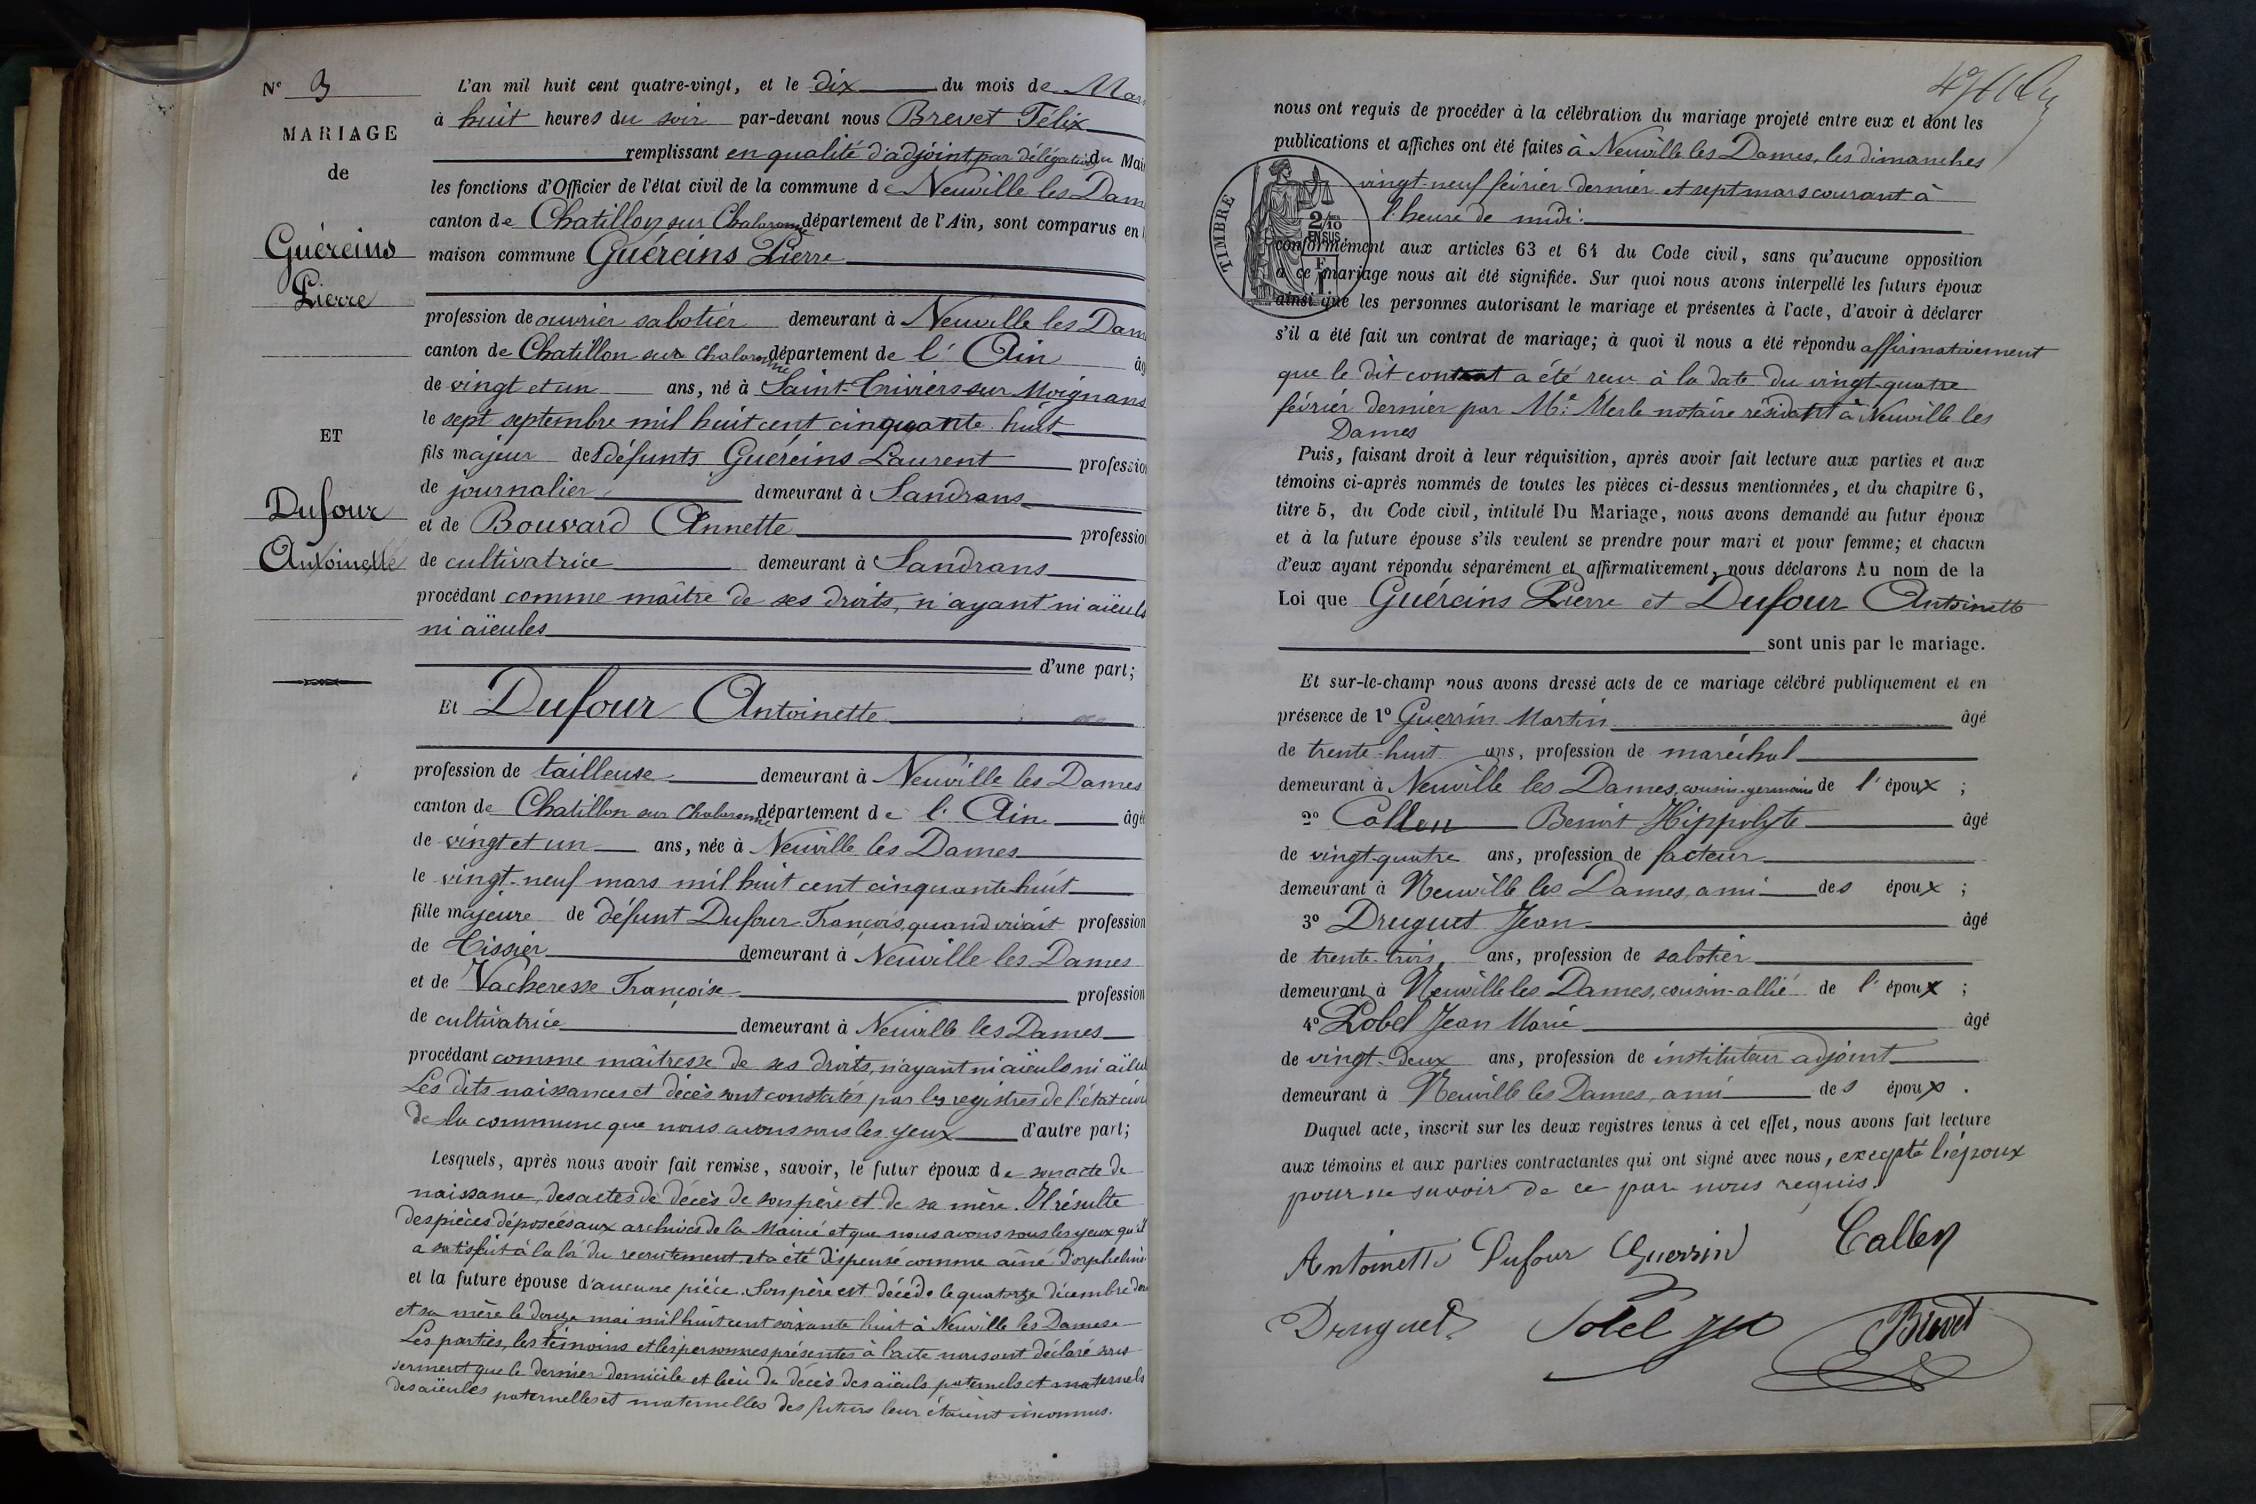 N° 3
MARIAGE
de
Guéreins
Pierre
ET
Dufour
Antoinette
L'an mil huit cent quatre-vingt, et le dix du mois de Mar
à huit heures du soir par-devant nous Brevet Félix
remplissant en qualité d'adjoint par délégation du Mai
les fonctions d'Officier de l'état civil de la commune de Neuville les Dam
canton de Chatillon sur Chalaronne département de l'Ain, sont comparus en
maison commune Guéreins Pierre
profession de ouvrier sabotier demeurant à Neuville les Dam
canton de Chatillon sur Chalaronne département de l'Ain âg
de vingt et un ans, né à Saint-Triviers sur Moignans
le sept septembre mil huit cent cinquante huit
fils majeur des défunts Guéreins Laurent profession
de journalier demeurant à Sandrans
et de Bouvard Annette profession
de cultivatrice demeurant à Sandrans
procédant comme maître de ses droits, n'ayant ni aïeuls
ni aïeules
d'une part;
Et Dufour Antoinette
profession de tailleuse demeurant à Neuville les Dames
canton de Chatillon sur Chalaronne département de l'Ain âgé
de vingt et un ans, née à Neuville les Dames
le vingt-neuf mars mil huit cent cinquante huit
fille majeure de défunt Dufour François, quand vivait profession
de Tissier demeurant à Neuville les Dames
et de Vacheresse Françoise profession
de cultivatrice demeurant à Neuville les Dames
procédant comme maîtresse de ses droits, n'ayant ni aïeuls ni aïeul
Les dits naissances et décès sont constatés par les registres de l'état civil
de la commune que nous avons sous les yeux d'autre part;
Lesquels, après nous avoir fait remise, savoir, le futur époux de son acte de
naissance, des actes de décès de son père et de sa mère. Il résulte
des pièces déposées aux archives de la Mairie et que nous avons sous les yeux qu'il
a satisfait à la loi du recrutement et a été dispensé comme aîné d'orphelins
et la future épouse d'aucune pièce. Son père est décédé le quatorze décembre
et sa mère le douze mai mil huit cent soixante huit à Neuville les Dames
Les parties, les témoins et les personnes présentes à l'acte nous ont déclaré sous
serment que le dernier domicile et lieu de décès des aïeuls paternels et maternels
des aïeules paternelles et maternelles des futurs leur étaient inconnus.
nous ont requis de procéder à la célébration du mariage projeté entre eux et dont les
publications et affiches ont été faites à Neuville les Dames, les dimanches
vingt-neuf février dernier et sept mars courant à
l'heure de midi.
TIMBRE
2/10
EN SUS
conformément aux articles 63 et 64 du Code civil, sans qu'aucune opposition
à ce mariage nous ait été signifiée. Sur quoi nous avons interpellé les futurs époux
ainsi que les personnes autorisant le mariage et présentes à l'acte, d'avoir à déclarer
s'il a été fait un contrat de mariage; à quoi il nous a été répondu affirmativement
que le dit contrat a été reçu à la date du vingt-quatre
février dernier par Me Merle notaire résidant à Neuville les
Dames
Puis, faisant droit à leur réquisition, après avoir fait lecture aux parties et aux
témoins ci-après nommés de toutes les pièces ci-dessus mentionnées, et du chapitre 6,
titre 5, du Code civil, intitulé Du Mariage, nous avons demandé au futur époux
et à la future épouse s'ils veulent se prendre pour mari et pour femme; et chacun
d'eux ayant répondu séparément et affirmativement, nous déclarons Au nom de la
Loi que Guéreins Pierre et Dufour Antoinette
sont unis par le mariage.
Et sur-le-champ nous avons dressé acte de ce mariage célébré publiquement et en
présence de 1° Guerrin Martin âgé
de trente-huit ans, profession de maréchal
demeurant à Neuville les Dames, cousin-germain de l'époux ;
2° Callen Benoit Hippolyte âgé
de vingt-quatre ans, profession de facteur
demeurant à Neuville les Dames, ami des époux ;
3° Druguet Jean âgé
de trente-trois ans, profession de sabotier
demeurant à Neuville les Dames, cousin-allié de l'époux ;
4° Jean Marie âgé
de vingt-deux ans, profession de instituteur adjoint
demeurant à Neuville les Dames, ami des époux .
Duquel acte, inscrit sur les deux registres tenus à cet effet, nous avons fait lecture
aux témoins et aux parties contractantes qui ont signé avec nous, excepté l'époux
pour ne savoir de ce par nous requis.
Antoinette Dufour Guerrin Callen
Druguet Brevet